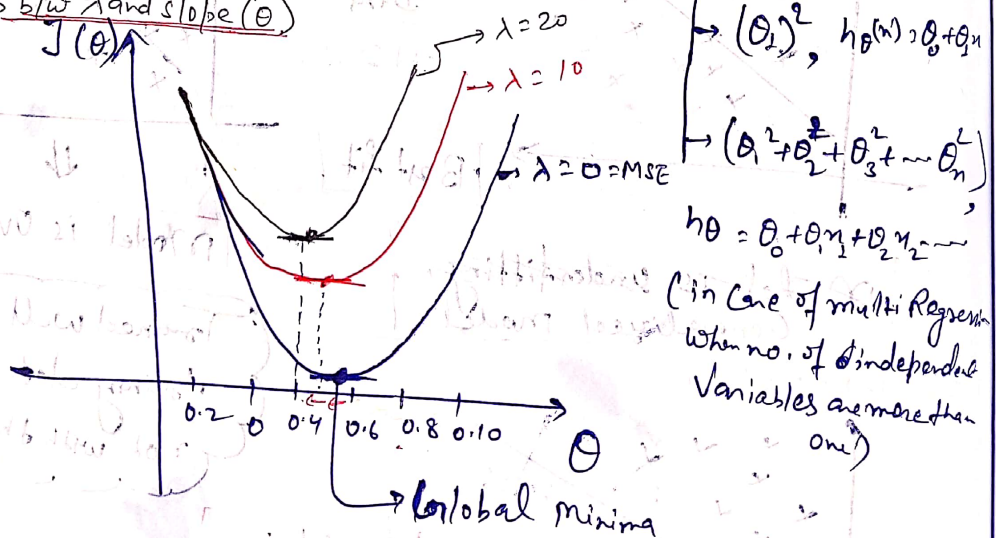 b/w λ and slope (θ)
J(θ)
→ λ = 20
→ λ = 10
→ λ = 0 = MSE
0.2 0 0.4 0.6 0.8 0.10
θ
→ Global minima
→ (θ₁)², hθ(x) = θ₀ + θ₁x
→ (θ₁² + θ₂² + θ₃² + ---- θₙ²),
hθ = θ₀ + θ₁x₁ + θ₂x₂ ----
(in case of multi Regression
When no. of independent
Variables are more than
one)